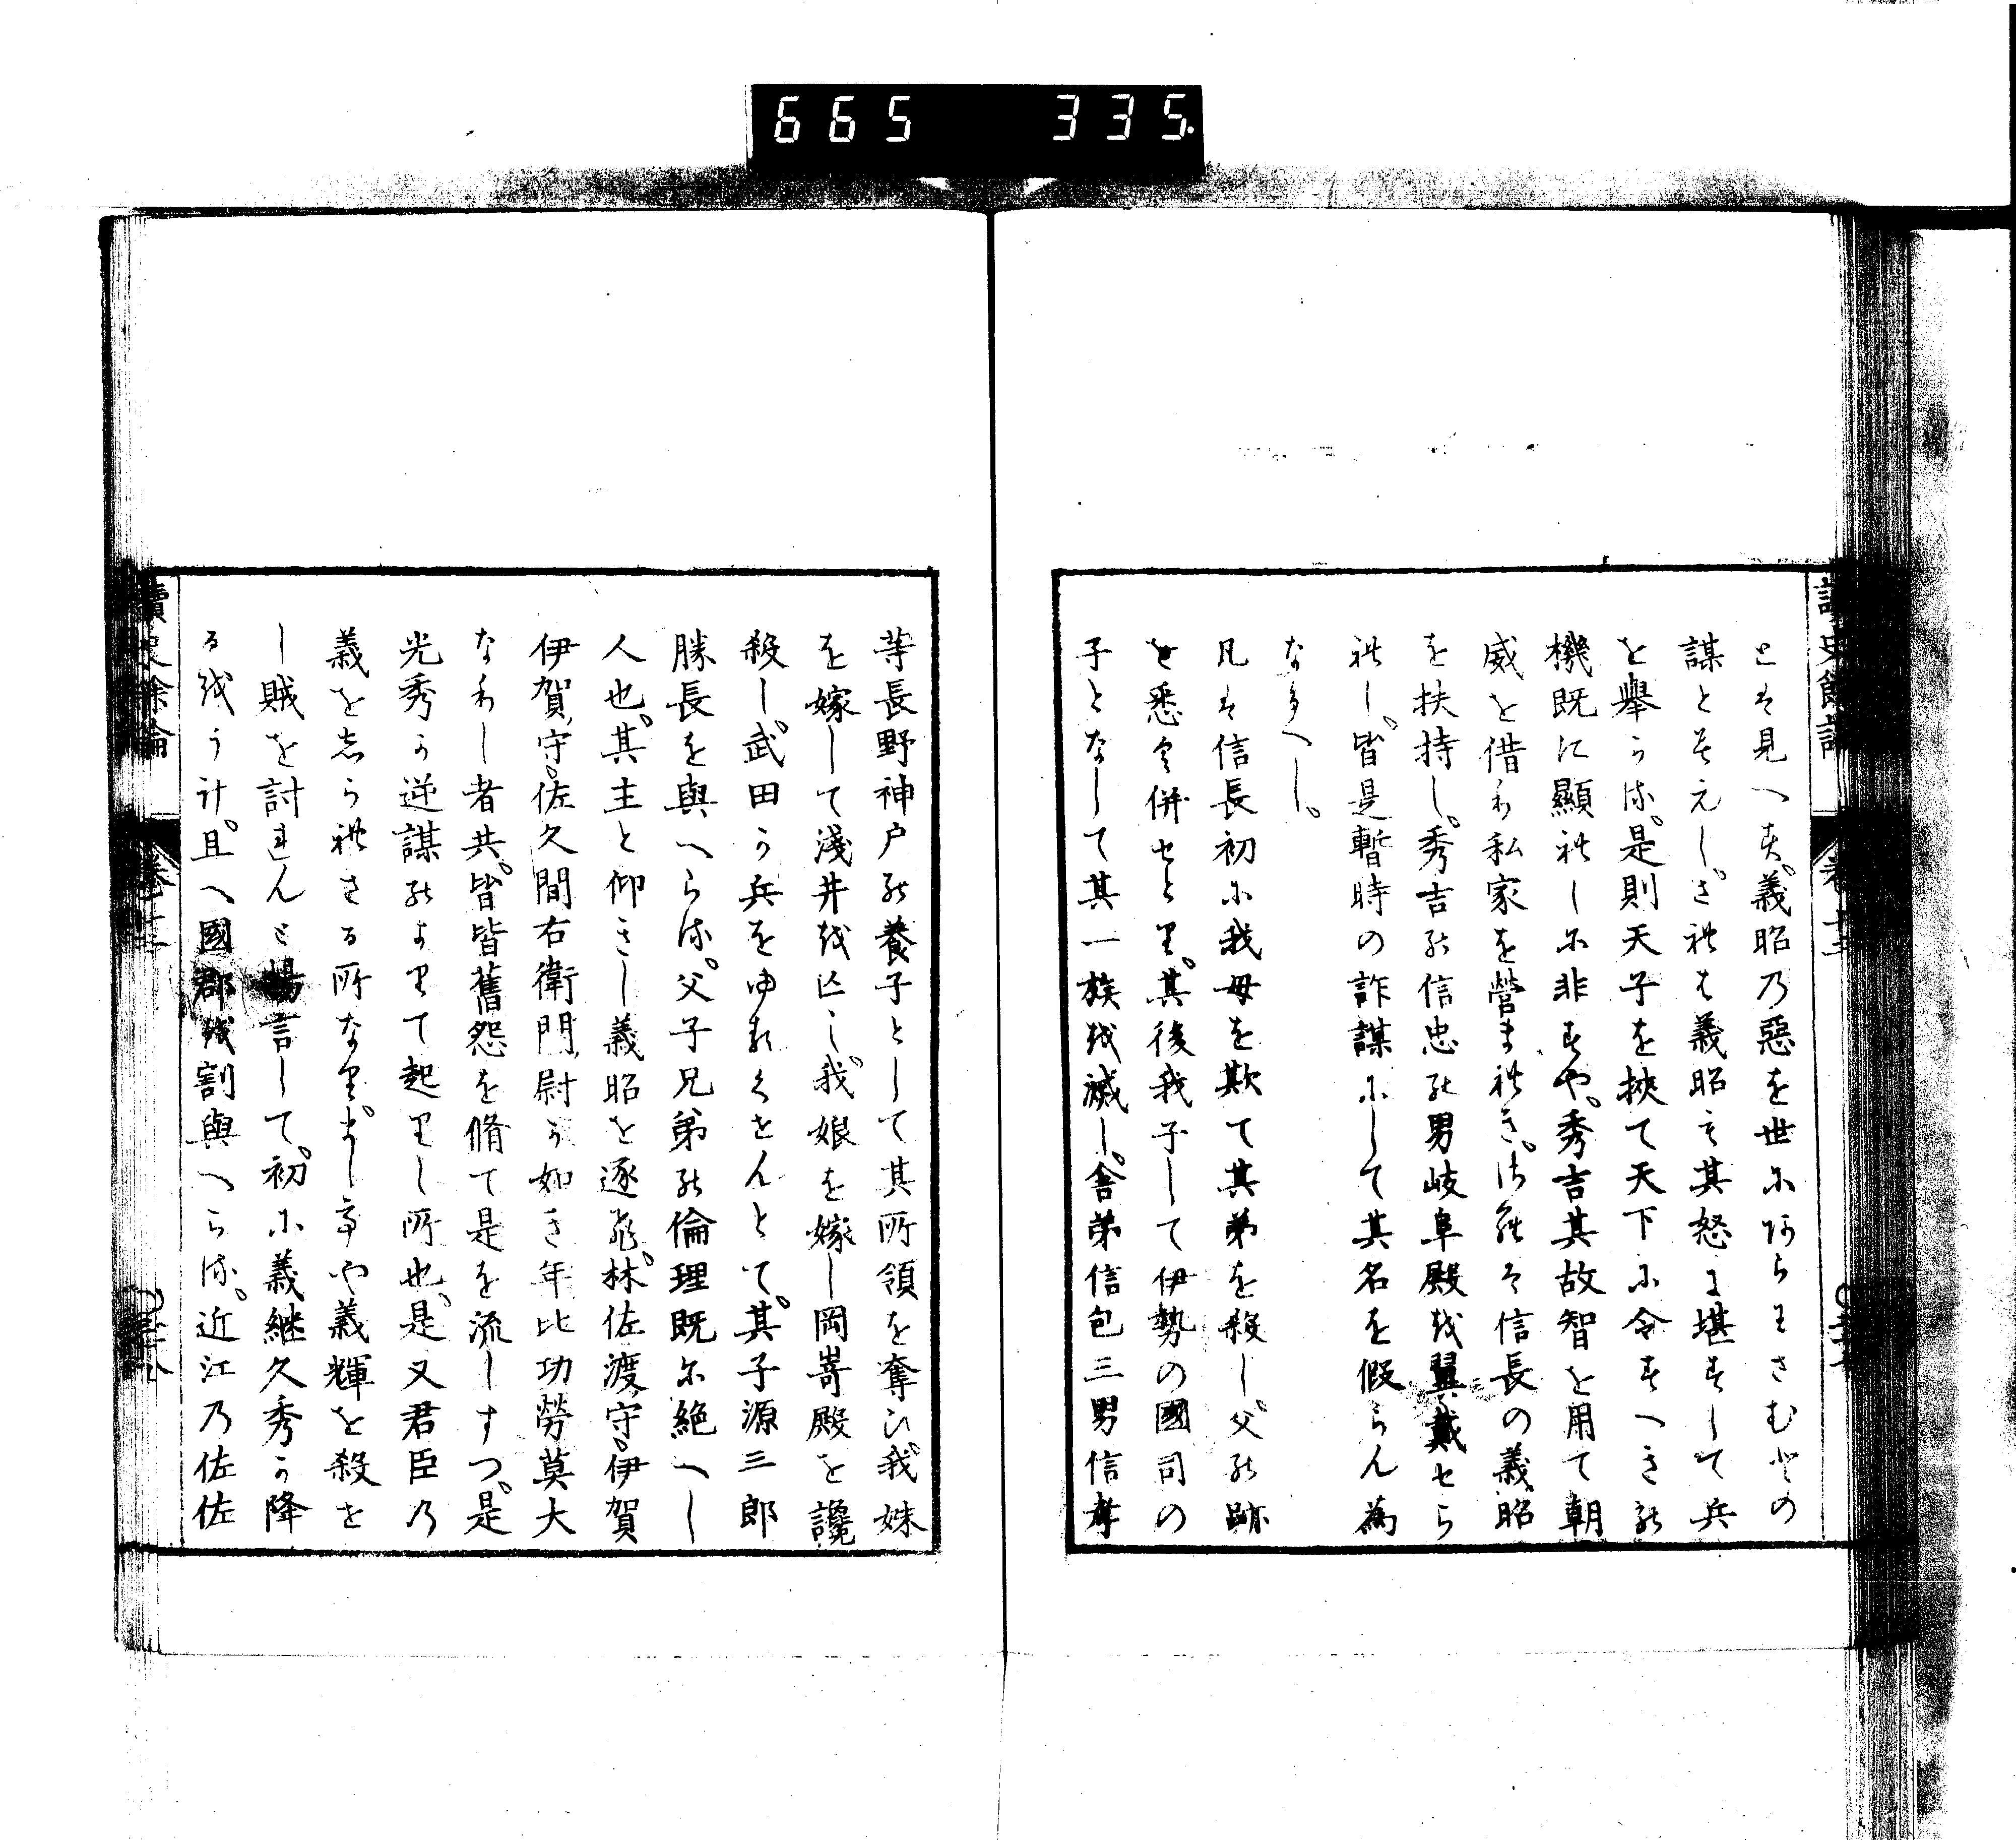 665 335.
讀史餘論 卷十二
とは見へす。義昭乃惡を世にあらはさむとの
謀とそ見えし。されは義昭も其怒に堪すして兵
を擧らる。是則天子を挾て天下に令すへきの
機既に顯れしに非すや。秀吉其故智を用て朝
威を借り私家を營まれき。されは信長の義昭
を扶持し。秀吉の信忠の男岐阜殿を翼戴せら
れし。皆是暫時の詐謀にして其名を假らん爲
なるへし。
凡は信長初に我母を欺て其弟を殺し。父の跡
を悉く併せとり。其後我子して伊勢の國司の
子となして其一族を滅し。舍弟信包三男信孝
等長野神戸の養子として其所領を奪ひ。我妹
を嫁して淺井を亡し。我娘を嫁し岡嵜殿を讒
殺し。武田の兵をゆるくせんとて。其子源三郎
勝長を與へらる。父子兄弟の倫理既に絶へし
人也。其主と仰きし義昭を逐ひ。林佐渡守。伊賀
伊賀守。佐久間右衛門尉の如き年比功勞莫大
なりし者共。皆皆舊怨を脩て是を流しすつ。是
光秀の逆謀のよりて起りし所也。是又君臣乃
義をしられさる所なり。ましてや義輝を殺せ
し賊を討れんと揚言して。初に義継久秀の降
るをうけ。且へ國郡を割與へらる。近江乃佐佐
讀史餘論 卷十二